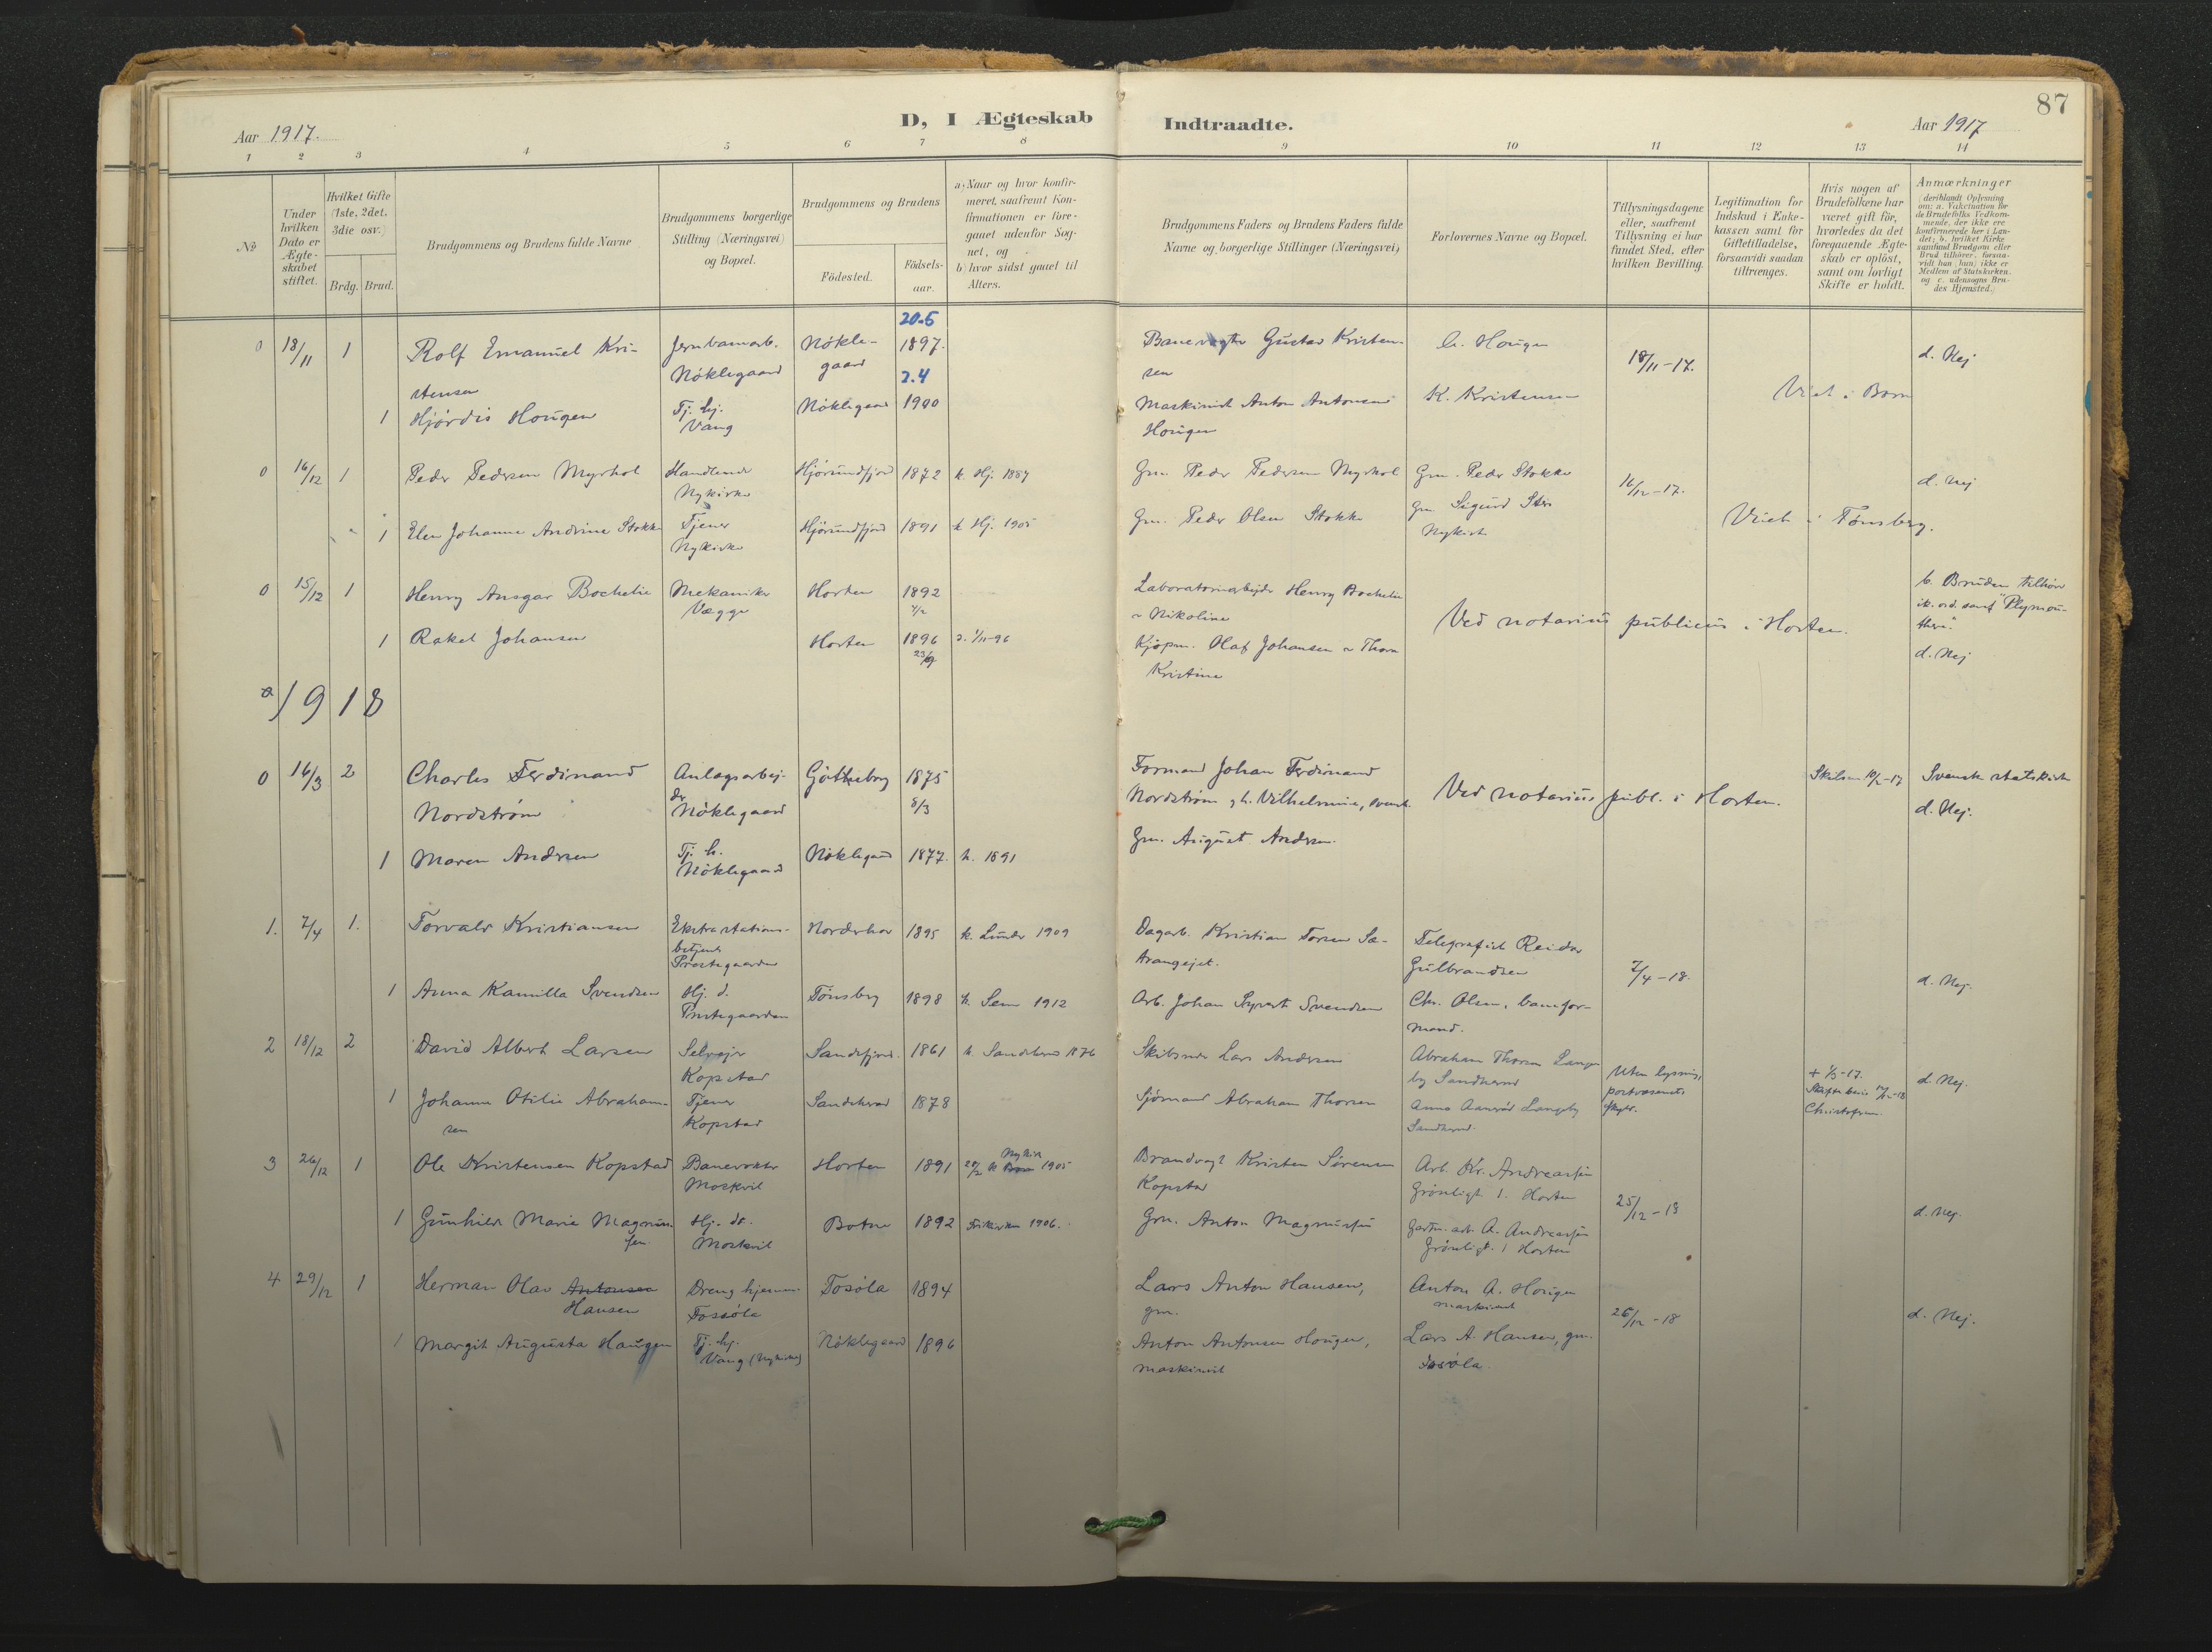 87
D, I Ægteskab Indtraadte.
Aar 1917.
Aar 1917
1 2 3 4 5 6 7 8 9 10 11 12 13 14
No
Under hvilken Dato er Ægteskabet stiftet.
Hvilket Gifte (1ste, 2det, 3die osv.)
Brdg. Brud.
Brudgommens og Brudens fulde Navne
Brudgommens borgerlige Stilling (Næringsvei) og Bopæl.
Brudgommens og Brudens
Födested.
Födselsaar.
a) Naar og hvor konfirmeret, saafremt Konfirmationen er foregaaet udenfor Sognet, og
b) hvor sidst gaaet til Alters.
Brudgommens Faders og Brudens Faders fulde Navne og borgerlige Stillinger (Næringsvei)
Forlovernes Navne og Bopæl.
Tillysningsdagene eller, saafremt Tillysning ei har fundet Sted, efter hvilken Bevilling.
Legitimation for Indskud i Enkekassen samt for Giftetilladelse, forsaavidt saadan tiltrænges.
Hvis nogen af Brudefolkene har været gift för, hvorledes da det foregaaende Ægteskab er oplöst, samt om lovligt Skifte er holdt.
Anmærkninger (deriblandt Oplysning om: a. Vakcination for de Brudefolks Vedkommende, der ikke ere konfirmerede her i Landet; b. hvilket Kirkesamfund Brudgom eller Brud tilhörer, forsaavidt han (hun) ikke er Medlem af Statskirken. og c. udensogns Brudes Hjemsted.)
0 18/11 1 Rolf Emanuel Kristensen Jernbanearb. Nöklegaard Nöklegaard 20.5 1897. Banevogter Gustav Kristensen C. Hougen 18/11-17. d. Nej
1 Hjördis Hougen Tj. hj. Vang Nöklegaard 2.4 1900 Maskinist Anton Antonsen Hougen K. Kristensen Viet i Borre
0 16/12 1 Peder Pedersen Myrhol Handlende Nykirke Hjörundfjord 1872 k. Hj. 1887 Gm. Peder Pedersen Myrhol Gm. Peder Stokke 16/12-17. d. Nej
1 Elen Johanne Andrine Stokke Tjener Nykirke Hjörundfjord 1891 k Hj. 1905 Gm. Peder Olsen Stokke Gm Sigurd Nykirke Viet i Tønsberg.
0 15/12 1 Henry Ansgar Bochelie Mekaniker Vægge Horten 1892 Laboratoriearbejder Henry Bochelie o Nikoline Ved notarius publicus i Horten. b. Bruden tilhører "Plymouthere" d. Nej
1 Rakel Johansen Horten 1896 23/9 Kjöpm. Olaf Johansen o Thora Kristine
1918
0 16/3 2 Charles Ferdinand Nordström Anlægsarbejder Nöklegaard Götheborg 1875 8/3 Formand Johan Ferdinand Nordström og h. Vilhelmine, svensk Ved notarius publ. i Horten. Skilsm 10/2-17 Svensk statskirke d. Nej.
1 Maren Andersen Tj. h. Nöklegaard Nöklegaard 1877. k. 1891 Gm. August Andersen.
1. 7/4 1. Torvald Kristiansen Ekstrastationsbetjent Prestegaarden Norderhov 1895 k. Lunder 1909 Dagarb. Kristian Torsen Sætrangejet. Telegrafist Reidar Gulbrandsen 7/4-18. d. Nej.
1 Anna Kamilla Svendsen Hj. d. Prestegaarden Tönsberg 1898 k. Sem 1912 Arb. Johan Syvert Svendsen Chr. Olsen, baneformand.
2 18/12 2 David Albert Larsen Selvejer Kopstad Sandefjord. 1861 k. Sandeherred 1876 Lars Andersen Abraham Thorsen Langeby Sandherred Uten lysning, + 1/5-17. d. Nej.
1 Johanne Otilie Abrahamsen Tjener Kopstad Sandeherred 1878 Sjömand Abraham Thorsen Anna Langeby Sandherred.
3 26/12 1 Ole Kristensen Kopstad Banevokter Moskvil Horten 1891 20/2 k Nykirke 1905 Brandvagt Kristen Sörensen Kopstad Arb. Kr. Andreassen Grönligt. 1. Horten 25/12-18 d. Nej.
1 Gunhild Marie Magnussen Hj. do. Moskvil Botne 1892 Frikirken 1906. Gm. Anton Magnussen A. Andreassen Grönligt. 1 Horten
4 29/12 1 Herman Olav Antonsen Hansen Dreng hjemme. Fossöla Fosöla 1894 Lars Anton Hansen, gm. Anton A. Hougen maskinist 26/12-18 d. Nej.
1 Margit Augusta Haugen Tj. hj. Vang (Nykirke) Nöklegaard 1896 Anton Antonsen Hougen, maskinist Lars A. Hansen, gm. Fosöla.